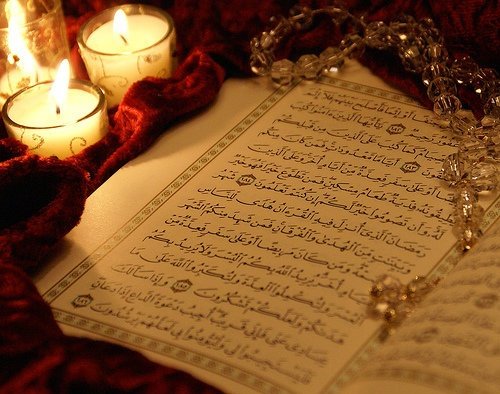 فَأَصْلَحَ بَيْنَهُمْ فَلَا إِثْمَ
۝١٨٢ يَٰٓأَيُّهَا الَّذِينَ ءَامَنُوا كُتِبَ
الصِّيَامُ كَمَا كُتِبَ عَلَى الَّذِينَ مِن قَبْلِكُمْ
۝١٨٣ أَيَّامًا مَّعْدُودَٰتٍ فَمَن كَانَ مِنكُم
مَّرِيضًا أَوْ عَلَىٰ سَفَرٍ فَعِدَّةٌ مِّنْ أَيَّامٍ أُخَرَ وَعَلَى الَّذِينَ
يُطِيقُونَهُ فِدْيَةٌ طَعَامُ مِسْكِينٍ فَمَن تَطَوَّعَ خَيْرًا فَهُوَ خَيْرٌ
لَّهُ وَأَن تَصُومُوا خَيْرٌ لَّكُمْ إِن كُنتُمْ تَعْلَمُونَ ۝١٨٤ شَهْرُ
رَمَضَانَ الَّذِي أُنزِلَ فِيهِ الْقُرْءَانُ هُدًى لِّلنَّاسِ
وَبَيِّنَٰتٍ مِّنَ الْهُدَىٰ وَالْفُرْقَانِ فَمَن شَهِدَ مِنكُمُ الشَّهْرَ
فَلْيَصُمْهُ وَمَن كَانَ مَرِيضًا أَوْ عَلَىٰ سَفَرٍ فَعِدَّةٌ مِّنْ
أَيَّامٍ أُخَرَ يُرِيدُ اللَّهُ بِكُمُ الْيُسْرَ وَلَا يُرِيدُ بِكُمُ
الْعُسْرَ وَلِتُكْمِلُوا الْعِدَّةَ وَلِتُكَبِّرُوا اللَّهَ عَلَىٰ مَا
هَدَىٰكُمْ وَلَعَلَّكُمْ تَشْكُرُونَ ۝١٨٥ وَإِذَا سَأَلَكَ
عِبَادِي عَنِّي فَإِنِّي قَرِيبٌ أُجِيبُ دَعْوَةَ الدَّاعِ إِذَا دَعَانِ
فَلْيَسْتَجِيبُوا لِي وَلْيُؤْمِنُوا بِي لَعَلَّهُمْ يَرْشُدُونَ ۝١٨٦